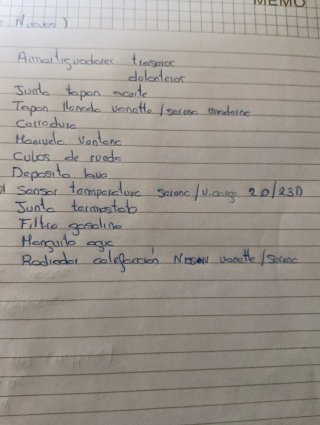 MEMO
Nuevos)
Amortiguadores traseros
delanteros
Junta tapon aceite
Tapon llenado vanette/serena
Cerradura
Manivela Ventana
Cubos de rueda
Deposito lava
Sensor temperatura serena/v.cargo 20/23D
Junta termostato
Filtro gasolina
Manguito agua
Radiador calefacción Nissan vanette/serena